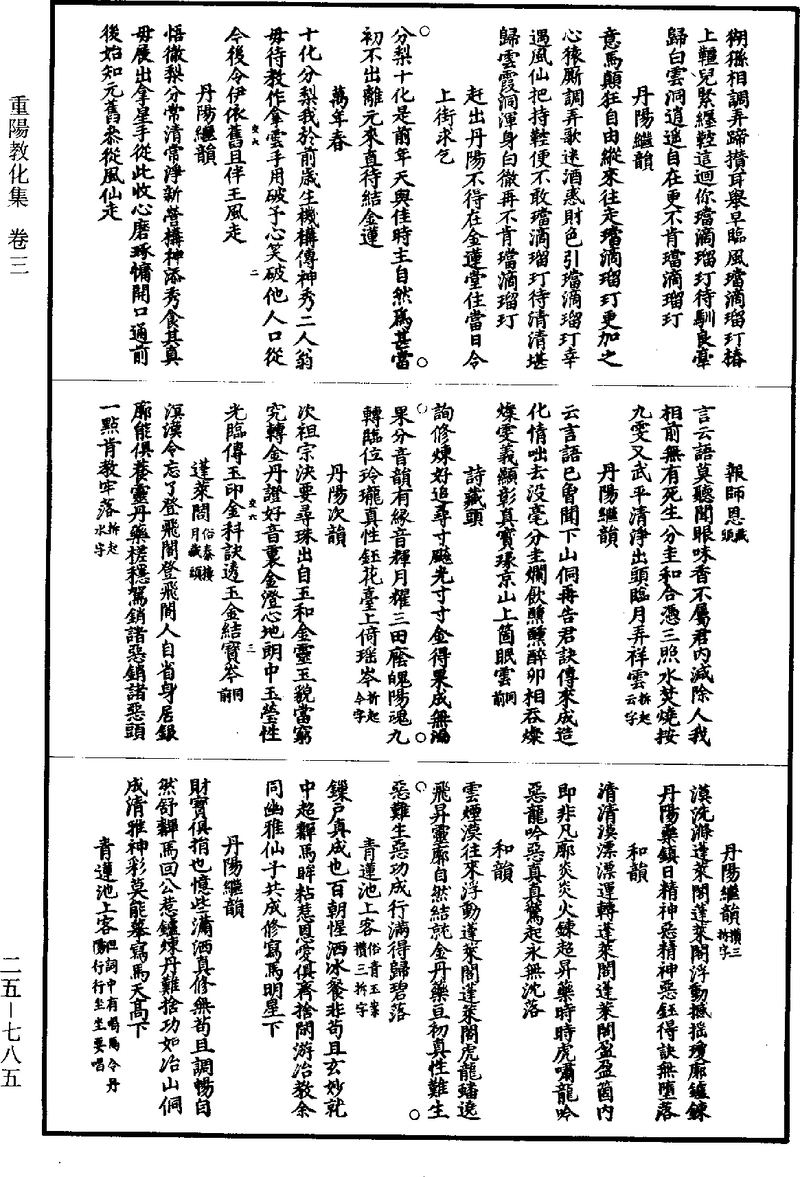 重陽教化集　卷三
二五—七八五
猢猻相調弄蹄攢耳舉早臨風璫滴瑠玎椿
上韁兒緊纏鞚這迴你璫滴瑠玎待馴良牽
歸白雲洞逍遙自在更不肯璫滴瑠玎
丹陽繼韻
意馬顛狂自由縱來往走璫滴瑠玎更加之
心猿廝調弄歌迷酒惑財色引璫滴瑠玎幸
遇風仙把持鞚便不敢璫滴瑠玎待清清堪
歸雲霞洞渾身白徹再不肯璫滴瑠玎
赶出丹陽不得在金蓮堂住當日令
上街求乞
分梨十化是前年天與佳時主自然爲甚當
初不出離元來直待結金蓮
萬年春
十化分梨我於前歲生機構傳神秀二人翁
毋待教作拿雲手用破予心笑破他人口從
今後令伊依舊且伴王風走
丹陽繼韻
悟徹梨分常清常淨新營構神添秀食其真
毋展出拿星手從此收心磨琢慵開口通前
後始知元舊忝從風仙走
報師恩藏頭
言云語莫聽聞眼味香不屬君內減除人我
相前無有死生分圭和合憑三照水焚燒按
九雯又武平清淨出頭臨月弄祥雲拆起云字
丹陽繼韻
云言語已曾聞下山侗再告君訣傳來成造
化情咄去没毫分圭爛飲醺醺醉卯相吞燦
燦雯義顯彰真寳瑑京山上箇眠雲同前
詩藏頭
詢修煉好追尋寸颷光寸寸金得果成無漏
果分音韻有緣音輝月耀三田麽魄陽魂九
轉臨位玲瓏真性鈺花臺上倚瑶岑拆起令字
丹陽次韻
次祖宗決要尋珠出自玉和金靈玉貌當窮
究轉金丹證好音裏金澄心地朗中玉瑩性
光臨傳玉印金科訣透玉金結寳岑同前
蓬萊閣俗秦樓月藏頭
溟漠令忘了登飛閣登飛閣人自省身居銀
廓能俱養靈丹藥槎穩駕銷諸惡銷諸惡頭
一點肯教牢落拆起水字
丹陽繼韻攢三拆字
漠沈滌蓬萊閣蓬萊閣浮動撼摇瓊廓鑪鍊
丹陽藥鎮日精神惡精神惡鈺得訣無墮落
和韻
清清漠漂漂運轉蓬萊閣蓬萊閣盈盈箇內
即非凡廓炎炎火鍊超昇藥時時虎嘯龍吟
惡龍吟惡真真驚起永無沈落
和韻
雲煙漠往來浮動蓬萊閣蓬萊閣虎龍繙遶
飛昇靈廓自然結詫金丹藥亘初真性難生
惡難生惡功成行滿得歸碧落
青蓮池上客俗青玉案攢三拆字
鏁戶真成也百朝惺洒冰餐非苟且玄妙就
中超驛馬眸粘慧恩愛俱齊捨閒游冶教余
同幽雅仙子共成修寫馬明星下
丹陽繼韻
財寳俱捐也憶些瀟洒真修無苟且調暢自
然舒驛馬回公惹鑪煉丹難捨功如冶山侗
成清雅神彩莫能摹寫馬天髙下
青蓮池上客四詞中有喝馬令丹陽行行坐坐要唱